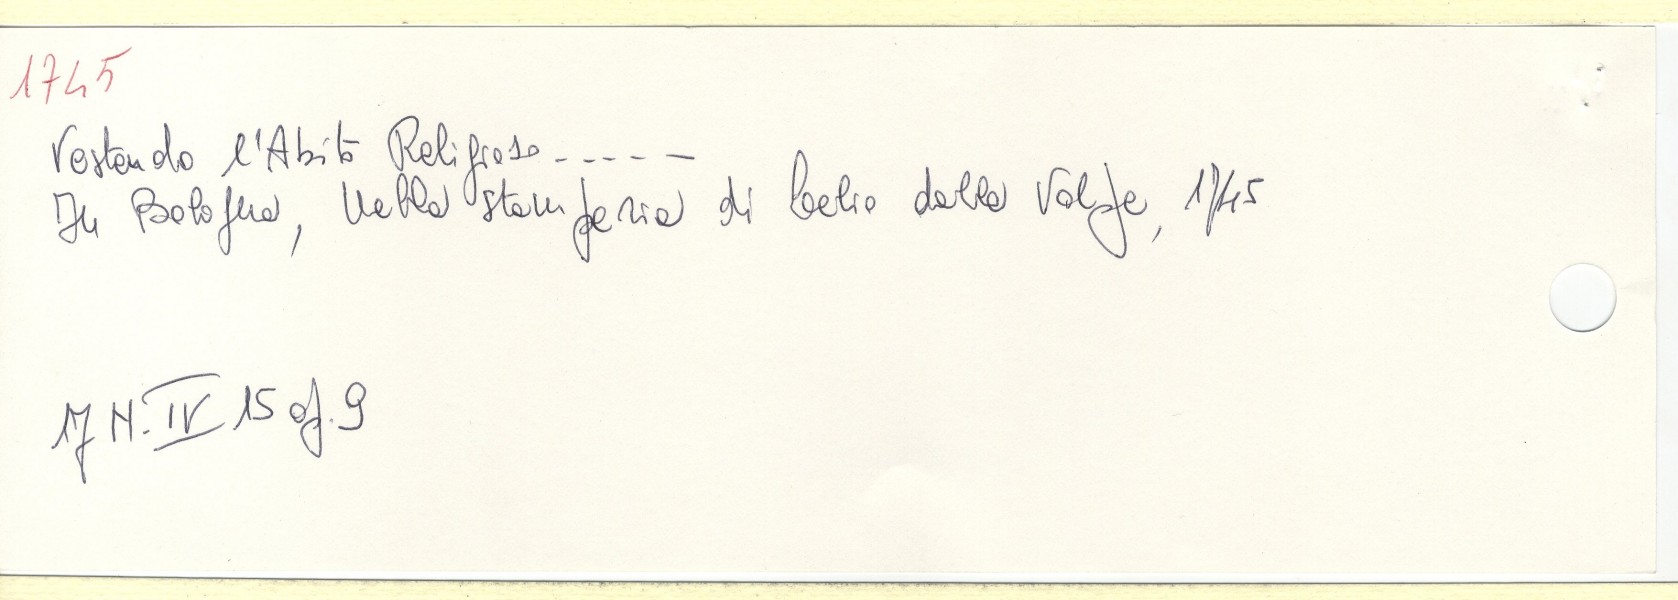 1745
Vestendo l'Abito Religioso-----
In Bologna, Nella stamperia di Lelio dalla Volpe, 1745
17 N. IV 15 of. 9